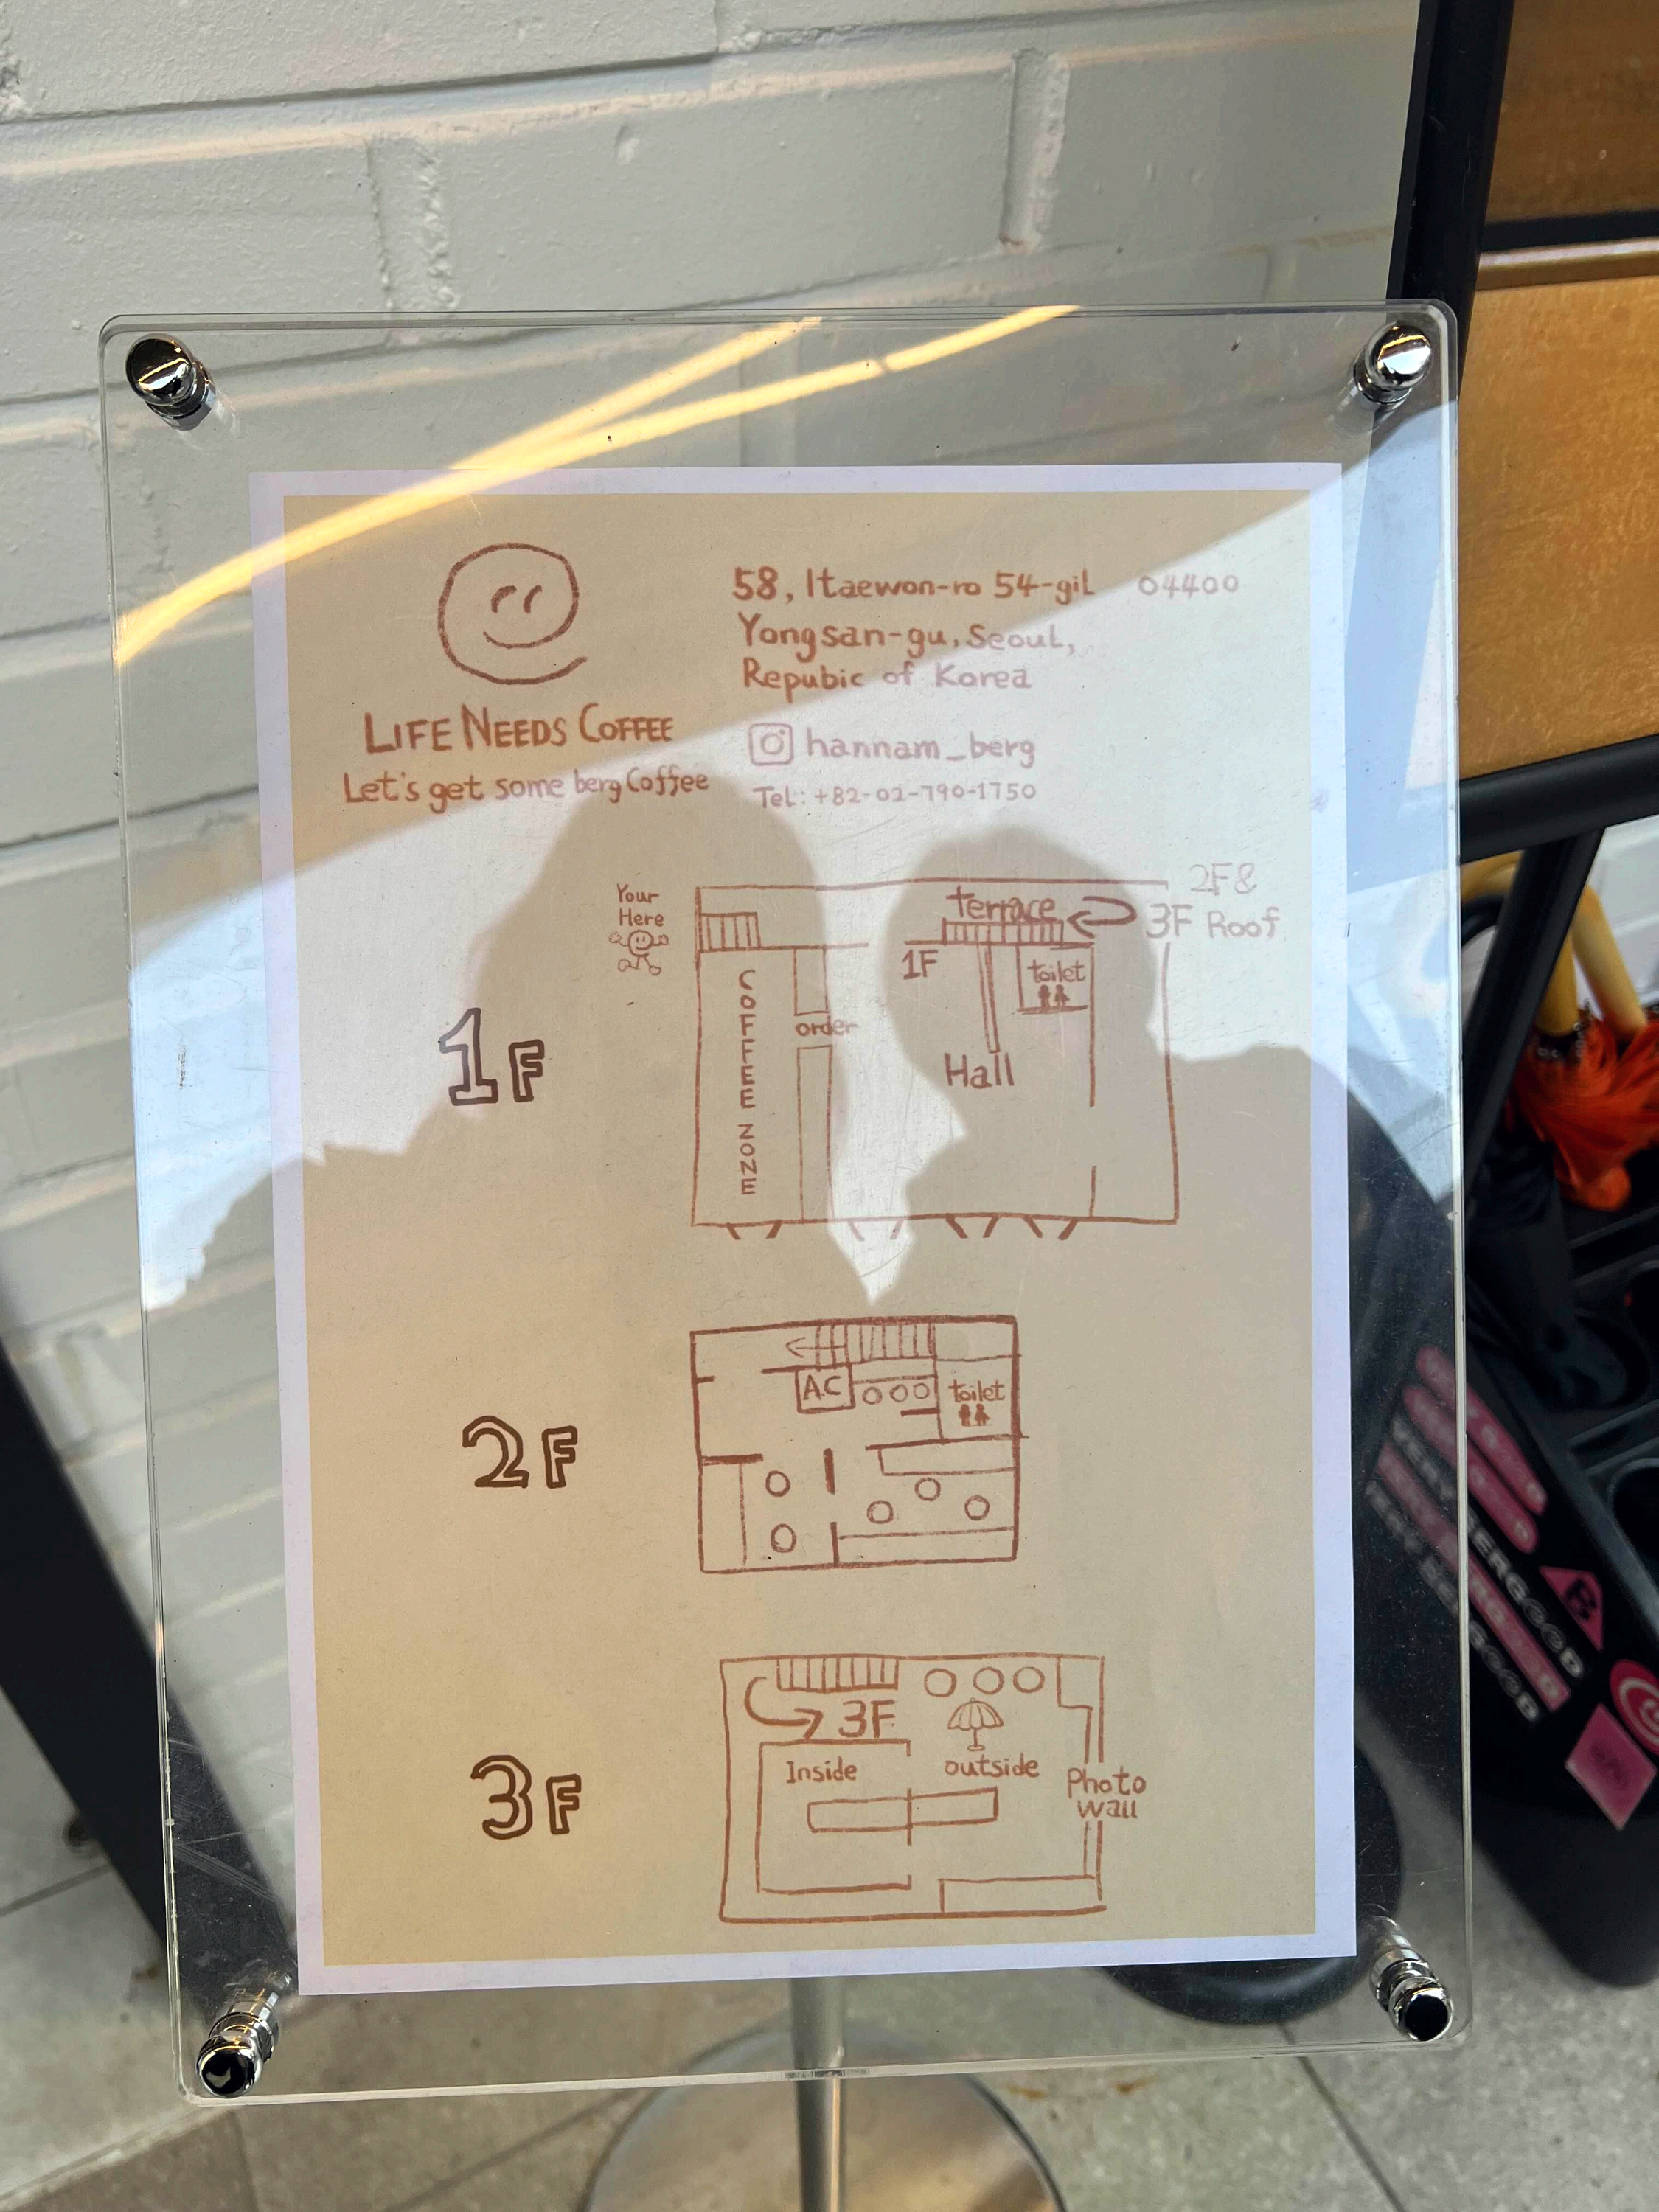 58, Itaewon-ro 54-gil 04400
Yongsan-gu, Seoul,
Repubic of Korea
LIFE NEEDS COFFEE
Let's get some berg Coffee
hannam_berg
Tel: +82-02-790-1750
Your
Here
terrace
2F &
3F Roof
1F
toilet
COFFEE ZONE
order
Hall
1F
A.C
toilet
2F
3F
Inside
outside
Photo
wall
3F